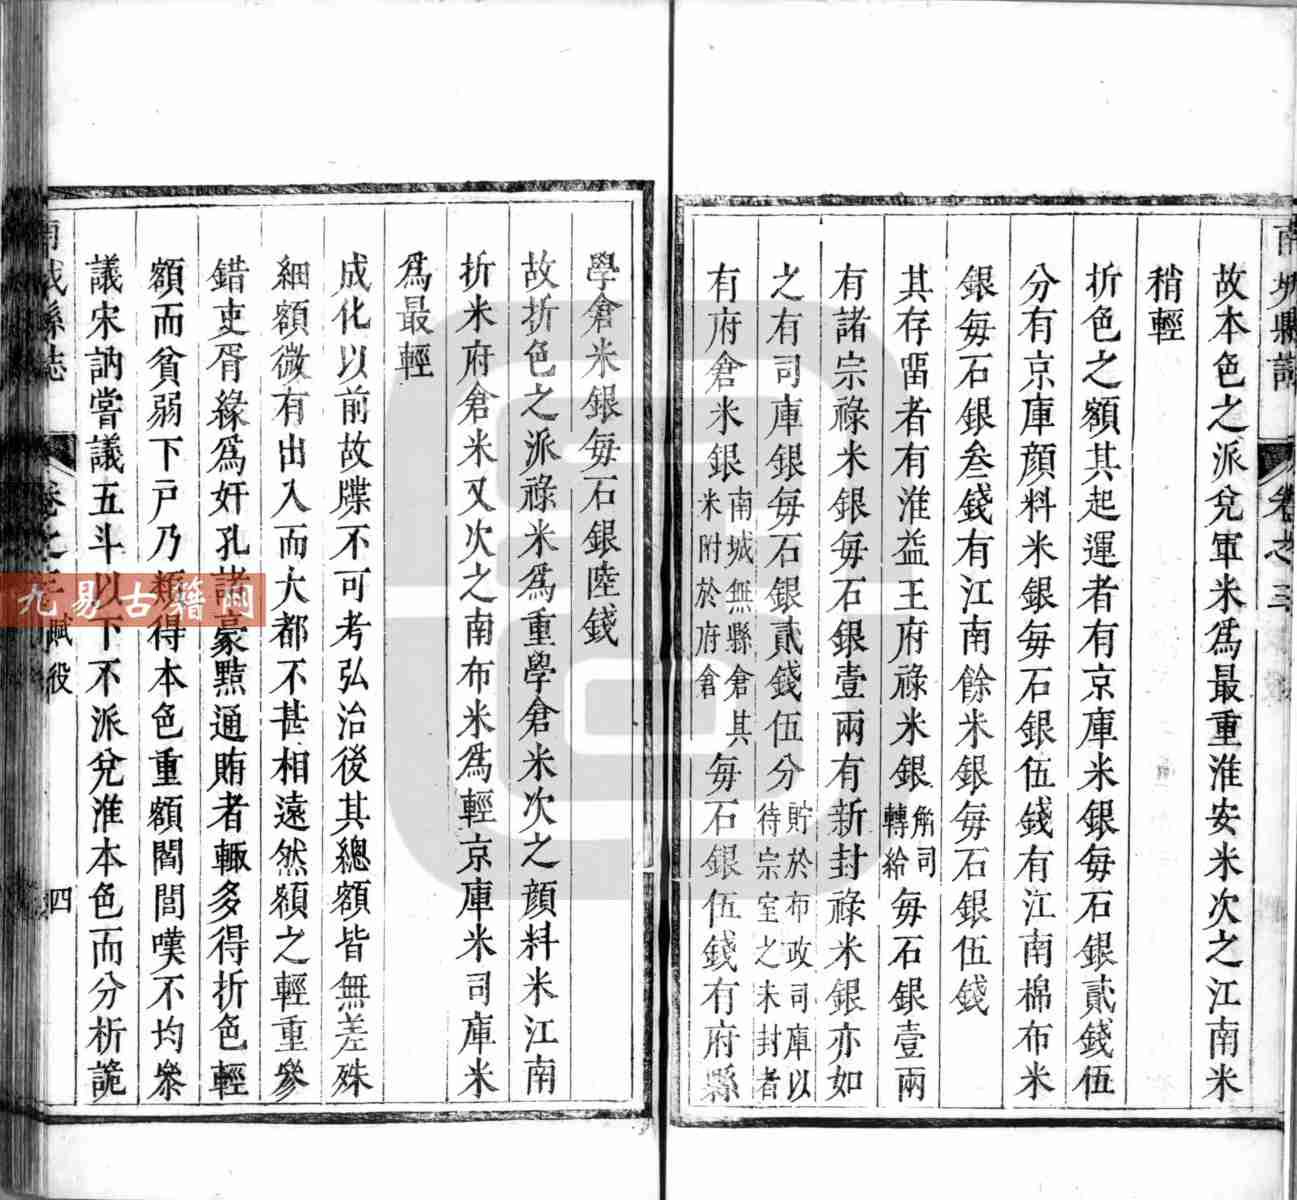 南城縣誌
卷之三
故本色之派兌軍米爲最重淮安米次之江南米
稍輕
折色之額其起運者有京庫米銀每石銀貳錢伍
分有京庫顏料米銀每石銀伍錢有江南棉布米
銀每石銀叁錢有江南餘米銀每石銀伍錢
其存留者有淮益王府祿米銀解司轉給每石銀壹兩
有諸宗祿米銀每石銀壹兩有新封祿米銀亦如
之有司庫銀每石銀貳錢伍分貯於布政司庫以待宗室之未封者
有府倉米銀南城無縣倉其米附於府倉每石銀伍錢有府縣
學倉米銀每石銀陸錢
故折色之派祿米爲重學倉米次之顏料米江南
折米府倉米又次之南布米爲輕京庫米司庫米
爲最輕
成化以前故牒不可考弘治後其總額皆無差殊
細額微有出入而大都不甚相遠然額之輕重參
錯吏胥緣爲奸孔諸豪黠通賄者輒多得折色輕
額而貧弱下戸乃類得本色重額閭閻嘆不均叅
議宋訥嘗議五斗以下不派兌淮本色而分析詭
南城縣誌
卷之三 賦役
四
九易古籍网